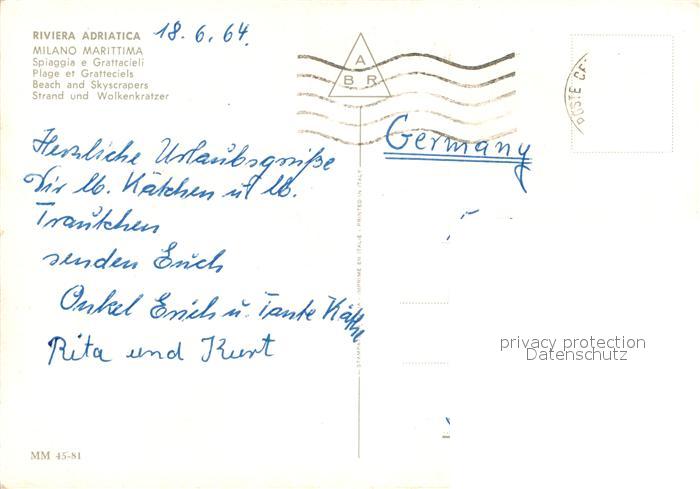 RIVIERA ADRIATICA
MILANO MARITTIMA
Spiaggia e Grattacieli
Plage et Gratteciels
Beach and Skyscrapers
Strand und Wolkenkratzer
18.6.64.
Herzliche Urlaubsgrüße
Dir lb. Kätchen u lb.
Trautchen
senden Euch
Onkel Erich u. Tante Käthe
Rita und Kurt
MM 45-81
IMPRIME EN ITALIE - PRINTED IN ITALY
A
B R
POSTE
Germany
privacy protection
Datenschutz